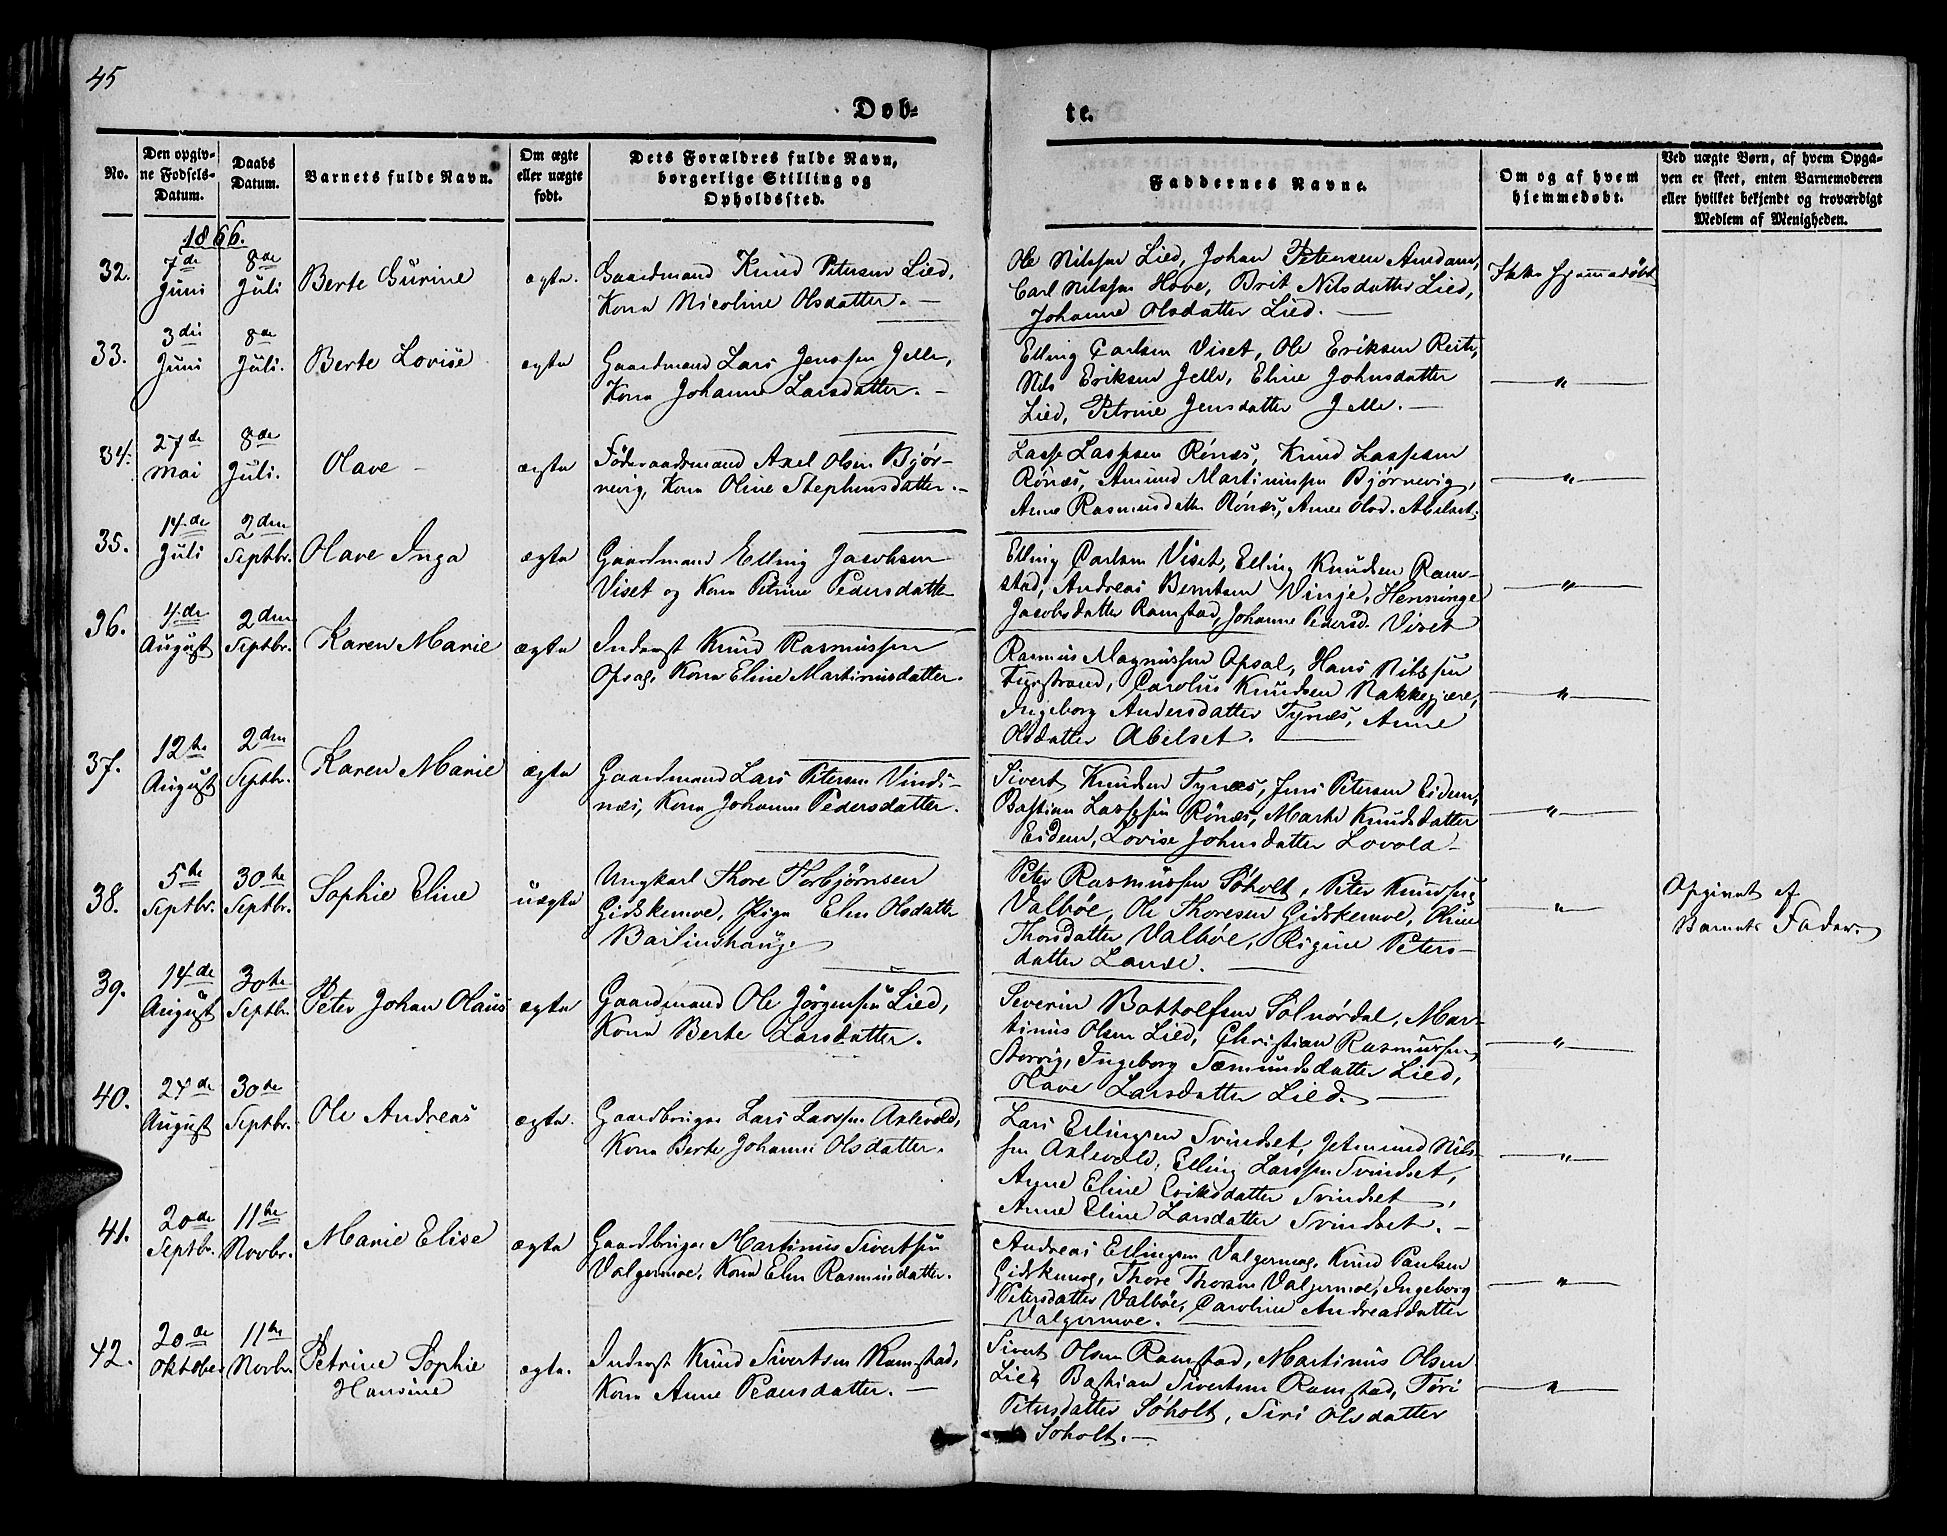 45
Døb-
te.
No.
Den opgiv-
ne Fødsels-
Datum.
Daabs
Datum.
Barnets fulde Navn.
Om ægte
eller uægte
født.
Dets Forældres fulde Navn,
borgerlige Stilling og
Opholdssted.
Faddernes Navne.
Om og af hvem
hjemmedøbt.
Ved uægte Børn, af hvem Opga-
ven er skeet, enten Barnemoderen
eller hvilket bekjendt og troværdigt
Medlem af Menigheden.
1866.
32.
7de
Juni
8de
Juli
Berte Gurine
ægte.
Gaardmand Knud Petersen Lied,
Kone Nicoline Olsdatter. —
Ole Nilssen Lied, Johan Petersen Amdam,
Carl Nilssen Hove, Brit Nilsdatter Lied,
Johanne Olsdatter Lied. —
Ikke hjemmedøbt
33.
3die
Juni
8de
Juli.
Berte Lovise
ægte
Gaardmand Lars Jenssen Jelle,
Kone Johanne Larsdatter. —
Elling Carlsen Viset, Ole Eriksen Reite,
Nils Eriksen Jelle, Eline Johnsdatter
Lied, Petrine Jensdatter Jelle. —
— " —
34.
27de
Mai
8de
Juli.
Olave —
ægte
Føderaadsmand Axel Olsen Bjør-
nevig, Kone Oline Stephensdatter. —
Lasse Lassesen Rønæs, Knud Lassesen
Rønæs, Amund Martinussen Bjørnevig,
Anne Rasmusdatter Rønæs, Anne Olsd. Abelset.
— " —
35.
14de
Juli
2den
Septbr.
Olave Inga
ægte
Gaardmand Elling Jacobsen
Viset og Kone Petrine Pedersdatter
Elling Carlsen Viset, Elling Knudsen Ram-
stad, Andreas Berntsen Vinje, Henninge
Jacobsdatter Ramstad, Johanne Pedersd. Viset
— " —
36.
4de
August
2den
Septbr.
Karen Marie
ægte
Inderst Knud Rasmussen
Opsal, Kone Eline Martinusdatter.
Rasmus Magnussen Opsal, Hans Nilssen
Furstrand, Carolus Knudsen Nakkegjære,
Ingeborg Andersdatter Tynæs, Anne
Olsdatter Abelset. —
— " —
37.
12te
August
2den
Septbr.
Karen Marie
ægte
Gaardmand Lars Petersen Vinds-
næs, Kone Johanne Pedersdatter.
Sivert Knudsen Tynæs, Jens Petersen Eidem,
Bastian Lassesen Rønæs, Marte Knudsdatter
Eidem, Lovise Johnsdatter Lovold —
— " —
38.
5te
Septbr.
30te
Septbr.
Sophie Eline
uægte
Ungkarl Thore Torbjørnsen
Gidskemoe, Pige Elen Olsdatter
Peter Rasmussen Søholt, Peter Knudsen
Valbøe, Ole Thoresen Gidskemoe, Oline
Thorsdatter Valbøe, Regine Peters-
datter Lande. —
— " —
Opgivet af
Barnets Fader.
39.
14de
August
30te
Septbr.
Peter Johan Olaus
ægte
Gaardmand Ole Jørgensen Lied,
Kone Berte Larsdatter.
Severin Bottolfsen Solnørdal, Mar-
tinus Olsen Lied, Christian Rasmussen
Storvig, Ingeborg Sæmundsdatter Lied,
Olave Larsdatter Lied. —
— " —
40.
24de
August
30te
Septbr.
Ole Andreas
ægte.
Gaardbruger Lars Larssen Axlevold,
Kone Berte Johanne Olsdatter.
Lars Erlingsen Svindset, Jetmund Nils-
sen Axlevold, Elling Larssen Svindset,
Anne Eline Eriksdatter Svindset,
Anne Eline Larsdatter Svindset. —
— " —
41.
20de
Septbr.
11te
Novbr.
Marie Elise
ægte
Gaardbruger Martinus Sivertsen
Valgermoe, Kone Elen Rasmusdatter.
Andreas Ellingsen Valgermoe, Knud Paulsen
Gidskemoe, Thore Thorsen Valgermoe, Ingeborg
Petersdatter Valbøe, Caroline Andreasdatter
Valgermoe. —
— " —
42.
20de
Oktober
11te
Novbr.
Petrine Sophie
Hansine
ægte.
Inderst Knud Sivertsen Ramstad,
Kone Anne Pedersdatter. —
Sivert Olsen Ramstad, Martinus Olsen
Lied, Bastian Sivertsen Ramstad, Turi
Petersdatter Søholt, Siri Olsdatter
Søholt. —
— " —